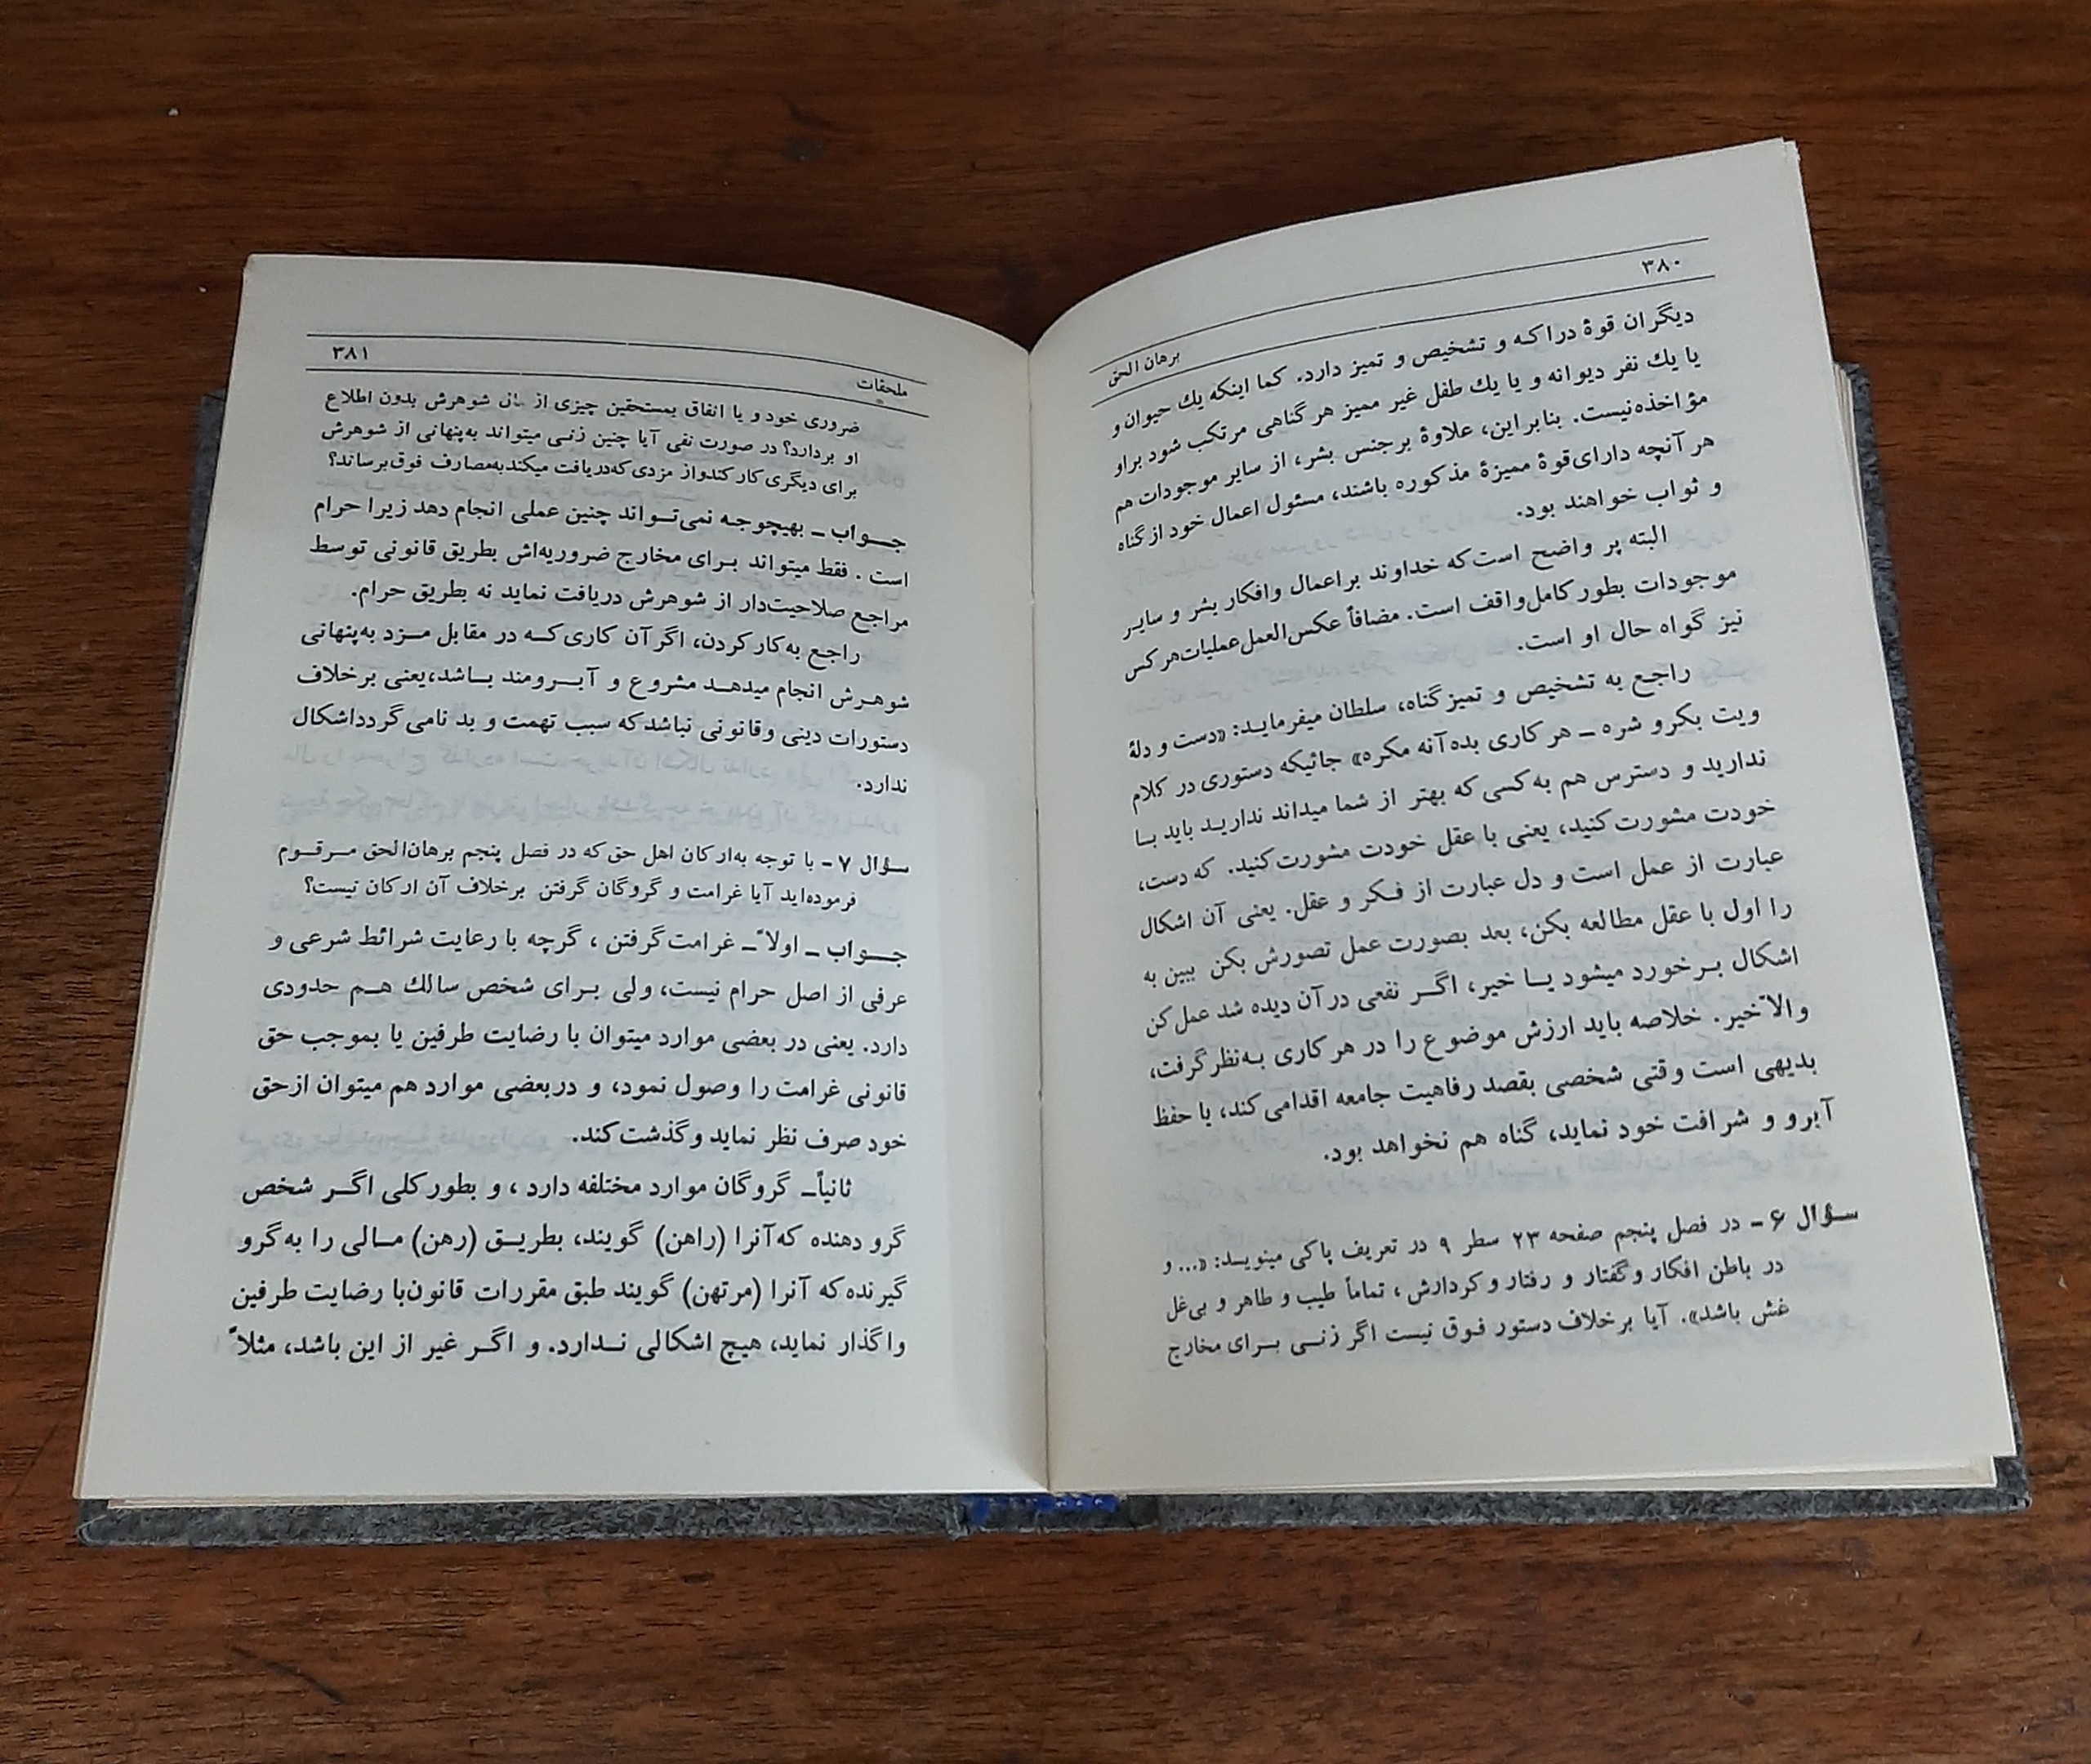 ۳۸۰
برهان الحق
دیگران قوهٔ دراکه و تشخیص و تمیز دارد. کما اینکه یك حیوان و
یا یك نفر دیوانه و یا یك طفل غیر ممیز هر گناهی مرتکب شود براو
مؤاخذه‌نیست. بنابراین، علاوهٔ برجنس بشر، از سایر موجودات هم
هر آنچه دارای‌قوهٔ ممیزهٔ مذکوره باشند، مسئول اعمال خود از گناه
و ثواب خواهند بود.
البته پر واضح است‌که خداوند براعمال وافکار بشر و سایر
موجودات بطور کامل‌واقف است. مضافاً عکس‌العمل‌عملیات‌هر کس
نیز گواه حال او است.
راجع به تشخیص و تمیز گناه، سلطان میفرماید: «دست و دلهٔ
ویت بکرو شره ـ هر کاری بده آنه مکره» جائیکه دستوری در کلام
ندارید و دسترس هم به کسی که بهتر از شما میداند ندارید باید با
خودت مشورت کنید، یعنی با عقل خودت مشورت‌کنید. که دست،
عبارت از عمل است و دل عبارت از فکر و عقل. یعنی آن اشکال
را اول با عقل مطالعه بکن، بعد بصورت عمل تصورش بکن ببین به
اشکال برخورد میشود یا خیر، اگر نفعی در آن دیده شد عمل‌کن
والاّخیر. خلاصه باید ارزش موضوع را در هر کاری به‌نظر گرفت،
بدیهی است وقتی شخصی بقصد رفاهیت جامعه اقدامی کند، با حفظ
آبرو و شرافت خود نماید، گناه هم نخواهد بود.
سؤال ۶ ـ در فصل پنجم صفحه ۲۳ سطر ۹ در تعریف پاکی مینویسد: «... و
در باطن افکار و گفتار و رفتار و کردارش، تماماً طیب و طاهر و بی‌غل
غش باشد». آیا برخلاف دستور فوق نیست اگر زنی برای مخارج
ملحقات
۳۸۱
ضروری خود و یا انفاق بمستحقین چیزی از مال شوهرش بدون اطلاع
او بردارد؟ در صورت نفی آیا چنین زنی میتواند به‌پنهانی از شوهرش
برای دیگری کار کندواز مزدی که‌دریافت میکندبه‌مصارف فوق‌برساند؟
جواب ـ بهیچوجه نمی‌تواند چنین عملی انجام دهد زیرا حرام
است . فقط میتواند برای مخارج ضروریه‌اش بطریق قانونی توسط
مراجع صلاحیت‌دار از شوهرش دریافت نماید نه بطریق حرام.
راجع به‌کار کردن، اگر آن کاری‌که در مقابل مزد به‌پنهانی
شوهرش انجام میدهد مشروع و آبرومند باشد،یعنی برخلاف
دستورات دینی وقانونی نباشدکه سبب تهمت و بد نامی گردداشکال
ندارد.
سؤال ۷ ـ با توجه به‌ارکان اهل حق که در فصل پنجم برهان‌الحق مرقوم
فرموده‌اید آیا غرامت و گروگان گرفتن برخلاف آن ارکان نیست؟
جواب ـ اولاً ـ غرامت‌گرفتن ، گرچه با رعایت شرائط شرعی و
عرفی از اصل حرام نیست، ولی برای شخص سالك هم حدودی
دارد. یعنی در بعضی موارد میتوان با رضایت طرفین یا بموجب حق
قانونی غرامت را وصول نمود، و دربعضی موارد هم میتوان ازحق
خود صرف نظر نماید وگذشت‌کند.
ثانیاً ـ گروگان موارد مختلفه دارد ، و بطورکلی اگر شخص
گرو دهنده که‌آنرا (راهن) گویند، بطریق (رهن) مالی را به‌گرو
گیرنده‌که آنرا (مرتهن) گویند طبق مقررات قانون‌با رضایت طرفین
واگذار نماید، هیچ اشکالی ندارد. و اگر غیر از این باشد، مثلاً